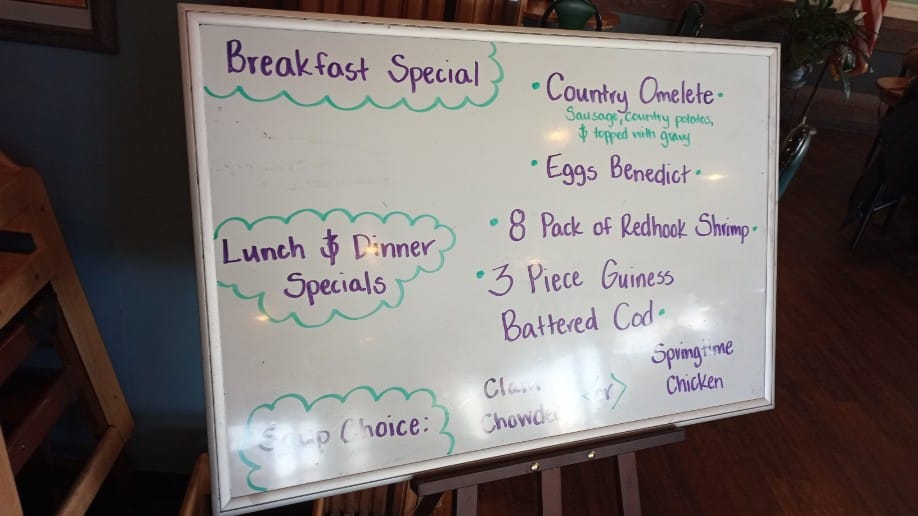 Breakfast Special
• Country Omelete •
Sausage, country potatos,
& topped with gravy
• Eggs Benedict •
Lunch & Dinner
Specials
• 8 Pack of Redhook Shrimp •
• 3 Piece Guiness
Battered Cod •
Soup Choice:
Clam
Chowder
<or>
Springtime
Chicken